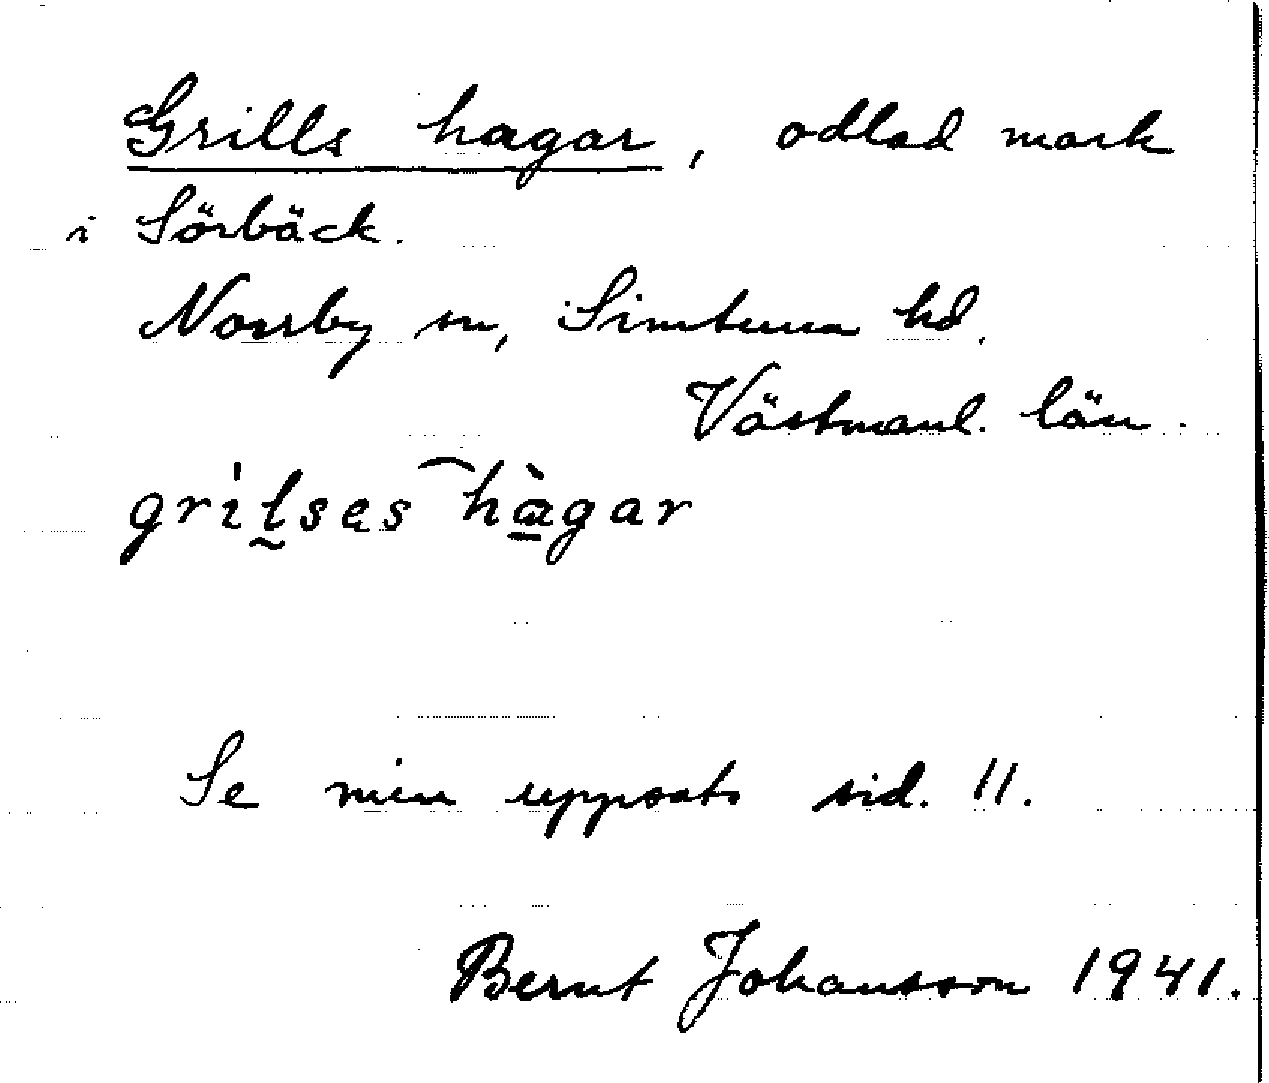 Grills hagar, odlad mark
i Sörbäck.
Norrby sn, Simtuna hd.
Västmanl. län.
grilses hàgar
Se min uppsats sid. 11.
Bernt Johansson 1941.